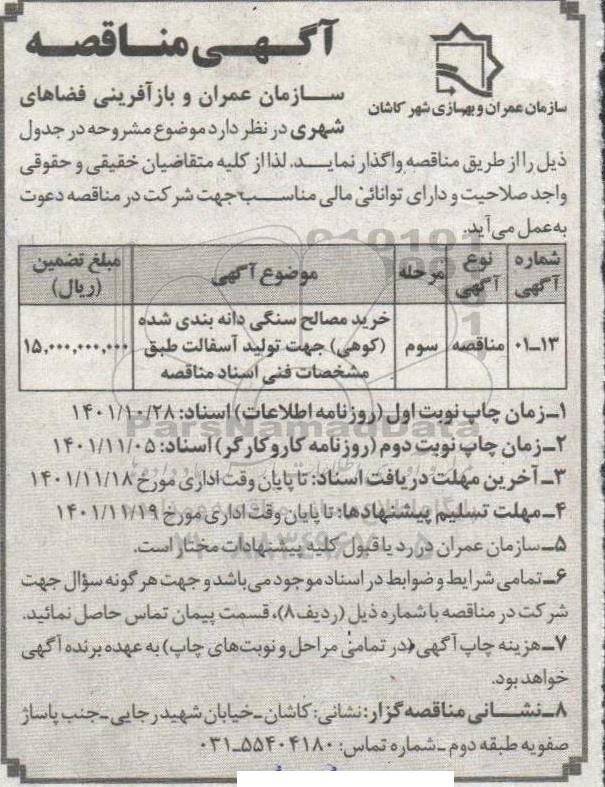 آگهی مناقصه
سازمان عمران و بهسازی شهر کاشان
سازمان عمران و بازآفرینی فضاهای
شهری در نظر دارد موضوع مشروحه در جدول
ذیل را از طریق مناقصه واگذار نماید. لذا از کلیه متقاضیان حقیقی و حقوقی
واجد صلاحیت و دارای توانائی مالی مناسب جهت شرکت در مناقصه دعوت
به‌عمل می‌آید.
شماره آگهی نوع آگهی مرحله موضوع آگهی مبلغ تضمین (ریال)
۱۳-۰۱ مناقصه سوم خرید مصالح سنگی دانه بندی شده (کوهی) جهت تولید آسفالت طبق مشخصات فنی اسناد مناقصه ۱۵,۰۰۰,۰۰۰,۰۰۰
۱-زمان چاپ نوبت اول (روزنامه اطلاعات) اسناد: ۱۴۰۱/۱۰/۲۸
۲-زمان چاپ نوبت دوم (روزنامه کار و کارگر) اسناد: ۱۴۰۱/۱۱/۰۵
۳-آخرین مهلت دریافت اسناد: تا پایان وقت اداری مورخ ۱۴۰۱/۱۱/۱۸
۴-مهلت تسلیم پیشنهادها: تا پایان وقت اداری مورخ ۱۴۰۱/۱۱/۱۹
۵-سازمان عمران در رد یا قبول کلیه پیشنهادات مختار است.
۶-تمامی شرایط و ضوابط در اسناد موجود می‌باشد و جهت هر گونه سؤال جهت
شرکت در مناقصه با شماره ذیل (ردیف ۸)، قسمت پیمان تماس حاصل نمائید.
۷-هزینه چاپ آگهی (در تمامی مراحل و نوبت‌های چاپ) به عهده برنده آگهی
خواهد بود.
۸-نشانی مناقصه‌گزار: نشانی: کاشان-خیابان شهید رجایی-جنب پاساژ
صفویه طبقه دوم-شماره تماس: ۵۵۴۰۴۱۸۰-۰۳۱
ParsNamadData